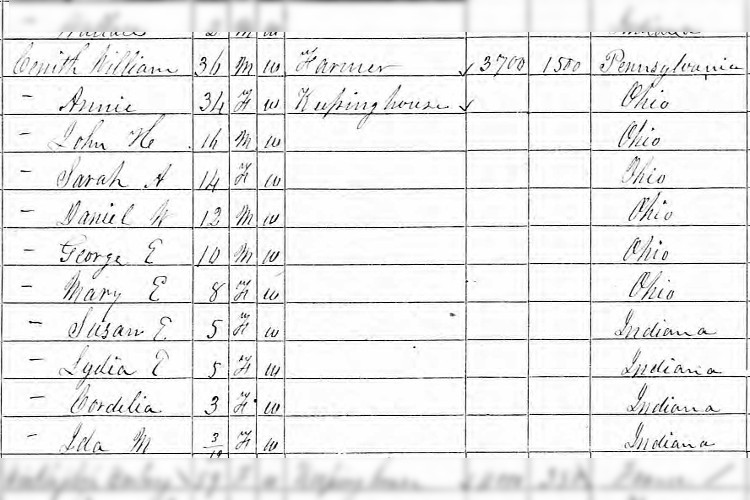 Wallace 2 M W Indiana
Cenith William 36 M W Farmer 3700 1500 Pennsylvania
— Annie 34 F W Keeping house Ohio
— John H 16 M W Ohio
— Sarah A 14 F W Ohio
— Daniel W 12 M W Ohio
— George E 10 M W Ohio
— Mary E 8 F W Ohio
— Susan E 5 F W Indiana
— Lydia E 5 F W Indiana
— Cordelia 3 F W Indiana
— Ida M 3/12 F W Indiana